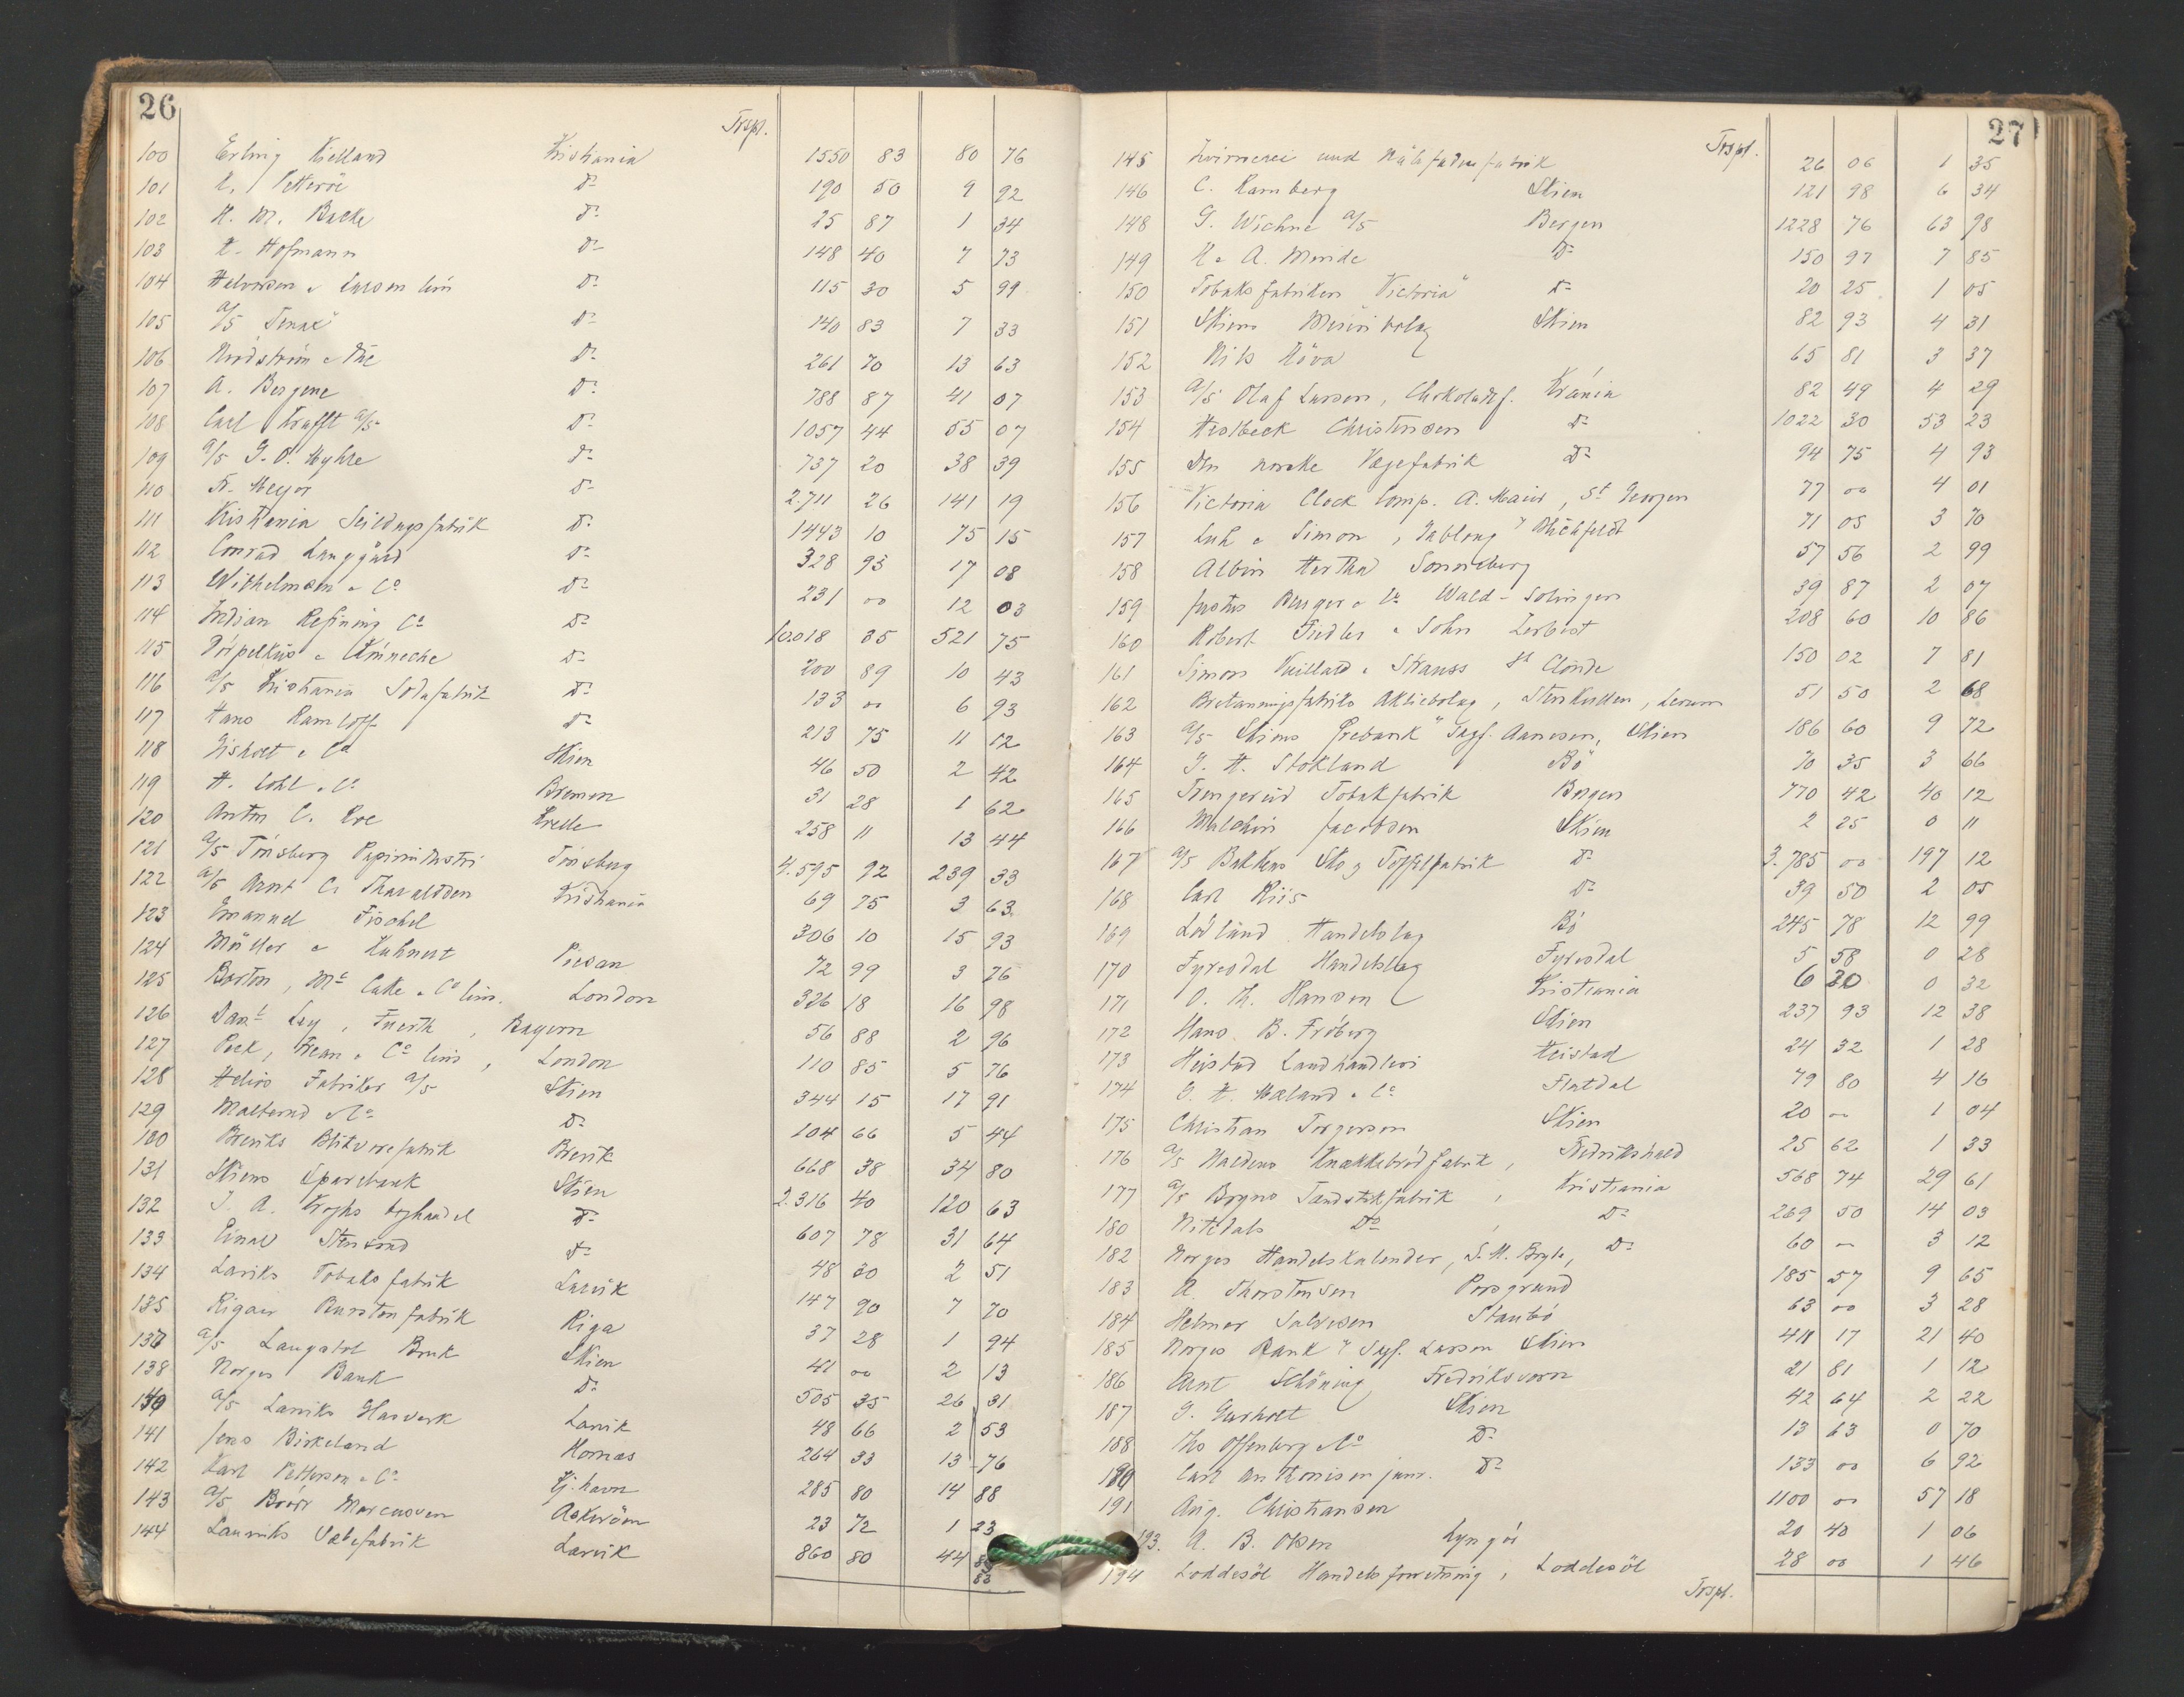 26
Trspt.
100 Erling Kielland Kristiania 1550 83 80 76
101 Petteröe Do 190 50 9 92
102 H. M. Bakke Do 25 87 1 34
103 Hofmann Do 148 40 7 73
104 Halvorsen & Larsen lim Do 115 30 5 99
105 A/S "Tenax" Do 140 83 7 33
106 Nordström & Due Do 261 70 13 63
107 A. Besgene Do 788 87 41 07
108 Carl Krafft A/S Do 1057 44 55 07
109 A/S G. O. Myhre Do 737 20 38 39
110 Fr. Meyer Do 2.711 26 141 19
111 Kristiania Seildugsfabrik Do 1443 10 75 15
112 Conrad Langgård Do 328 93 17 08
113 Wilhelmsen & Co Do 231 00 12 03
114 Indian Refining Co Do 10.018 35 521 75
115 Dörpelkus & Do 200 89 10 43
116 A/S Kristiania Sodafabrik Do 133 00 6 93
117 Hans Ramloff Do 213 75 11 12
118 Gisholt & Co Skien 46 50 2 42
119 H. Cohl & Co Bremen 31 28 1 62
120 Anton C. Roe Krelle 258 11 13 44
121 A/S Tönsberg Papirindustri Tönsberg 4.595 92 239 33
122 A/S Arnt C. Thavaldsen Kristiania 69 75 3 63
123 Emanuel Fischel 306 10 15 93
124 Möller & Kuhnert Piesau 72 99 3 76
125 Barton, Mc Cake & Co lim. London 326 18 16 98
126 Danl Ley, Fuerth, Bayern 56 88 2 96
127 Peek, Frean & Co lim, London 110 85 5 76
128 Helios Fabriker A/S Skien 344 15 17 91
129 Malterud & Co Do 104 66 5 44
130 Breviks Blikvarefabrik Brevik 668 38 34 80
131 Skiens Sparebank Skien 2.316 40 120 63
132 J. A. Kroghs boghandel Do 607 78 31 64
133 Einar Stensrud Do 48 30 2 51
134 Larviks Tobaksfabrik Larvik 147 90 7 70
135 Rigaer Bürstenfabrik Riga 37 28 1 94
137 A/S Langatvl Bruk Skien 41 00 2 13
138 Norges Bank Do 505 35 26 31
140 A/S Larviks Glasverk Larvik 48 66 2 53
141 Jens Birkeland Hornes 264 33 13 76
142 Karl Petterson & Co Kj.havn 285 80 14 88
143 A/S Brödr Marcussen Aaskeröen 23 72 1 23
144 Laurviks Væbefabrik Larvik 860 80 44 83
27
Trspt.
145 Zwirnerei und Nähfadenfabrik 26 06 1 35
146 C. Ramberg Skien 121 98 6 34
148 G. Wichne A/S Bergen 1228 76 63 98
149 K & A. Minde Do 150 97 7 85
150 Tobaksfabriken "Victoria" Do 20 25 1 05
151 Skiens Meieribolag Skien 82 93 4 31
152 Nils Köva 65 81 3 37
153 A/S Olaf Larsen, Chokoladef. Krania 82 49 4 29
154 Heolbeck Christensen Do 1022 30 53 23
155 Den norske Vægefabrik Do 94 75 4 93
156 Victoria Clock Comp. A. Maier, St Georgen 77 00 4 01
157 Luh & Simon, 71 05 3 70
158 Albin Hertha Sonneberg 57 56 2 99
159 Justus Berger & Co Wald-Solingen 39 87 2 07
160 Robert Fiedler & Sohn Zerbst 208 60 10 86
161 Simon Vuillard & Strauss St Claude 150 02 7 81
162 Bretanningsfabriks Aktiebolag, Stenkullen, Lerum 51 50 2 68
163 A/S Skiens Frebank Sagf. Aanesen, Skien 186 60 9 72
164 G. H. Stokland Bö 70 35 3 66
165 Trengereid Tobakfabrik Bergen 770 42 40 12
166 Malchin Jacobsen Skien 2 25 0 11
167 A/S Bakkens Sko & Töffelfabrik Do 3.785 00 197 12
168 Carl Riis Do 39 50 2 05
169 Lödland Handelslag Bö 245 78 12 99
170 Fyresdal Handelslag Fyresdal 5 58 0 28
171 O. Th. Hansen Kristiania 6 30 0 32
172 Hans B. Fröberg Skien 237 93 12 38
173 Heistad Landhandleri Heistad 24 32 1 28
174 G. H. Mæland & Co Flatdal 79 80 4 16
175 Christian Torgersen Skien 20 00 1 04
176 A/S Haldens Knækkebrödfabrik, Fredrikshald 25 62 1 33
177 A/S Bryns Tændstikfabrik, Kristiania 568 74 29 61
180 Nitedals Do, Do 269 50 14 03
182 Norges Handelskalender, S. M. Bryde, Do 60 00 3 12
183 A. Thorstensen Porsgrund 185 57 9 65
184 Helmer Salvesen Staubö 63 00 3 28
185 Norges Bank Sagf. Larsen Skien 411 17 21 40
186 Arnt Schöning Fredriksvern 21 81 1 12
187 G. Garholt Skien 42 64 2 22
188 Ths Offenberg & Co Do 13 63 0 70
190 Carl Anthonisen junr. Do 133 00 6 92
191 Aug. Christiansen 1100 00 57 18
193. A. B. Olsen Lyngör 20 40 1 06
194 Loddesöl Handelsforretning, Loddesöl 28 00 1 46
Trspt.